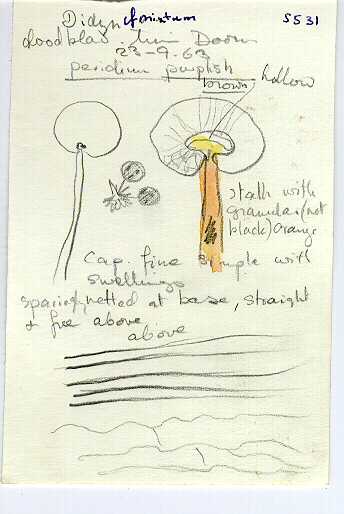 Didym cf mixtum 5531
23-9-63
peridium purplish
brown hollow
stalk with
granular (not
black) orange
Cap. fine simple with
swellings
sparsely netted at base, straight
& free above
above